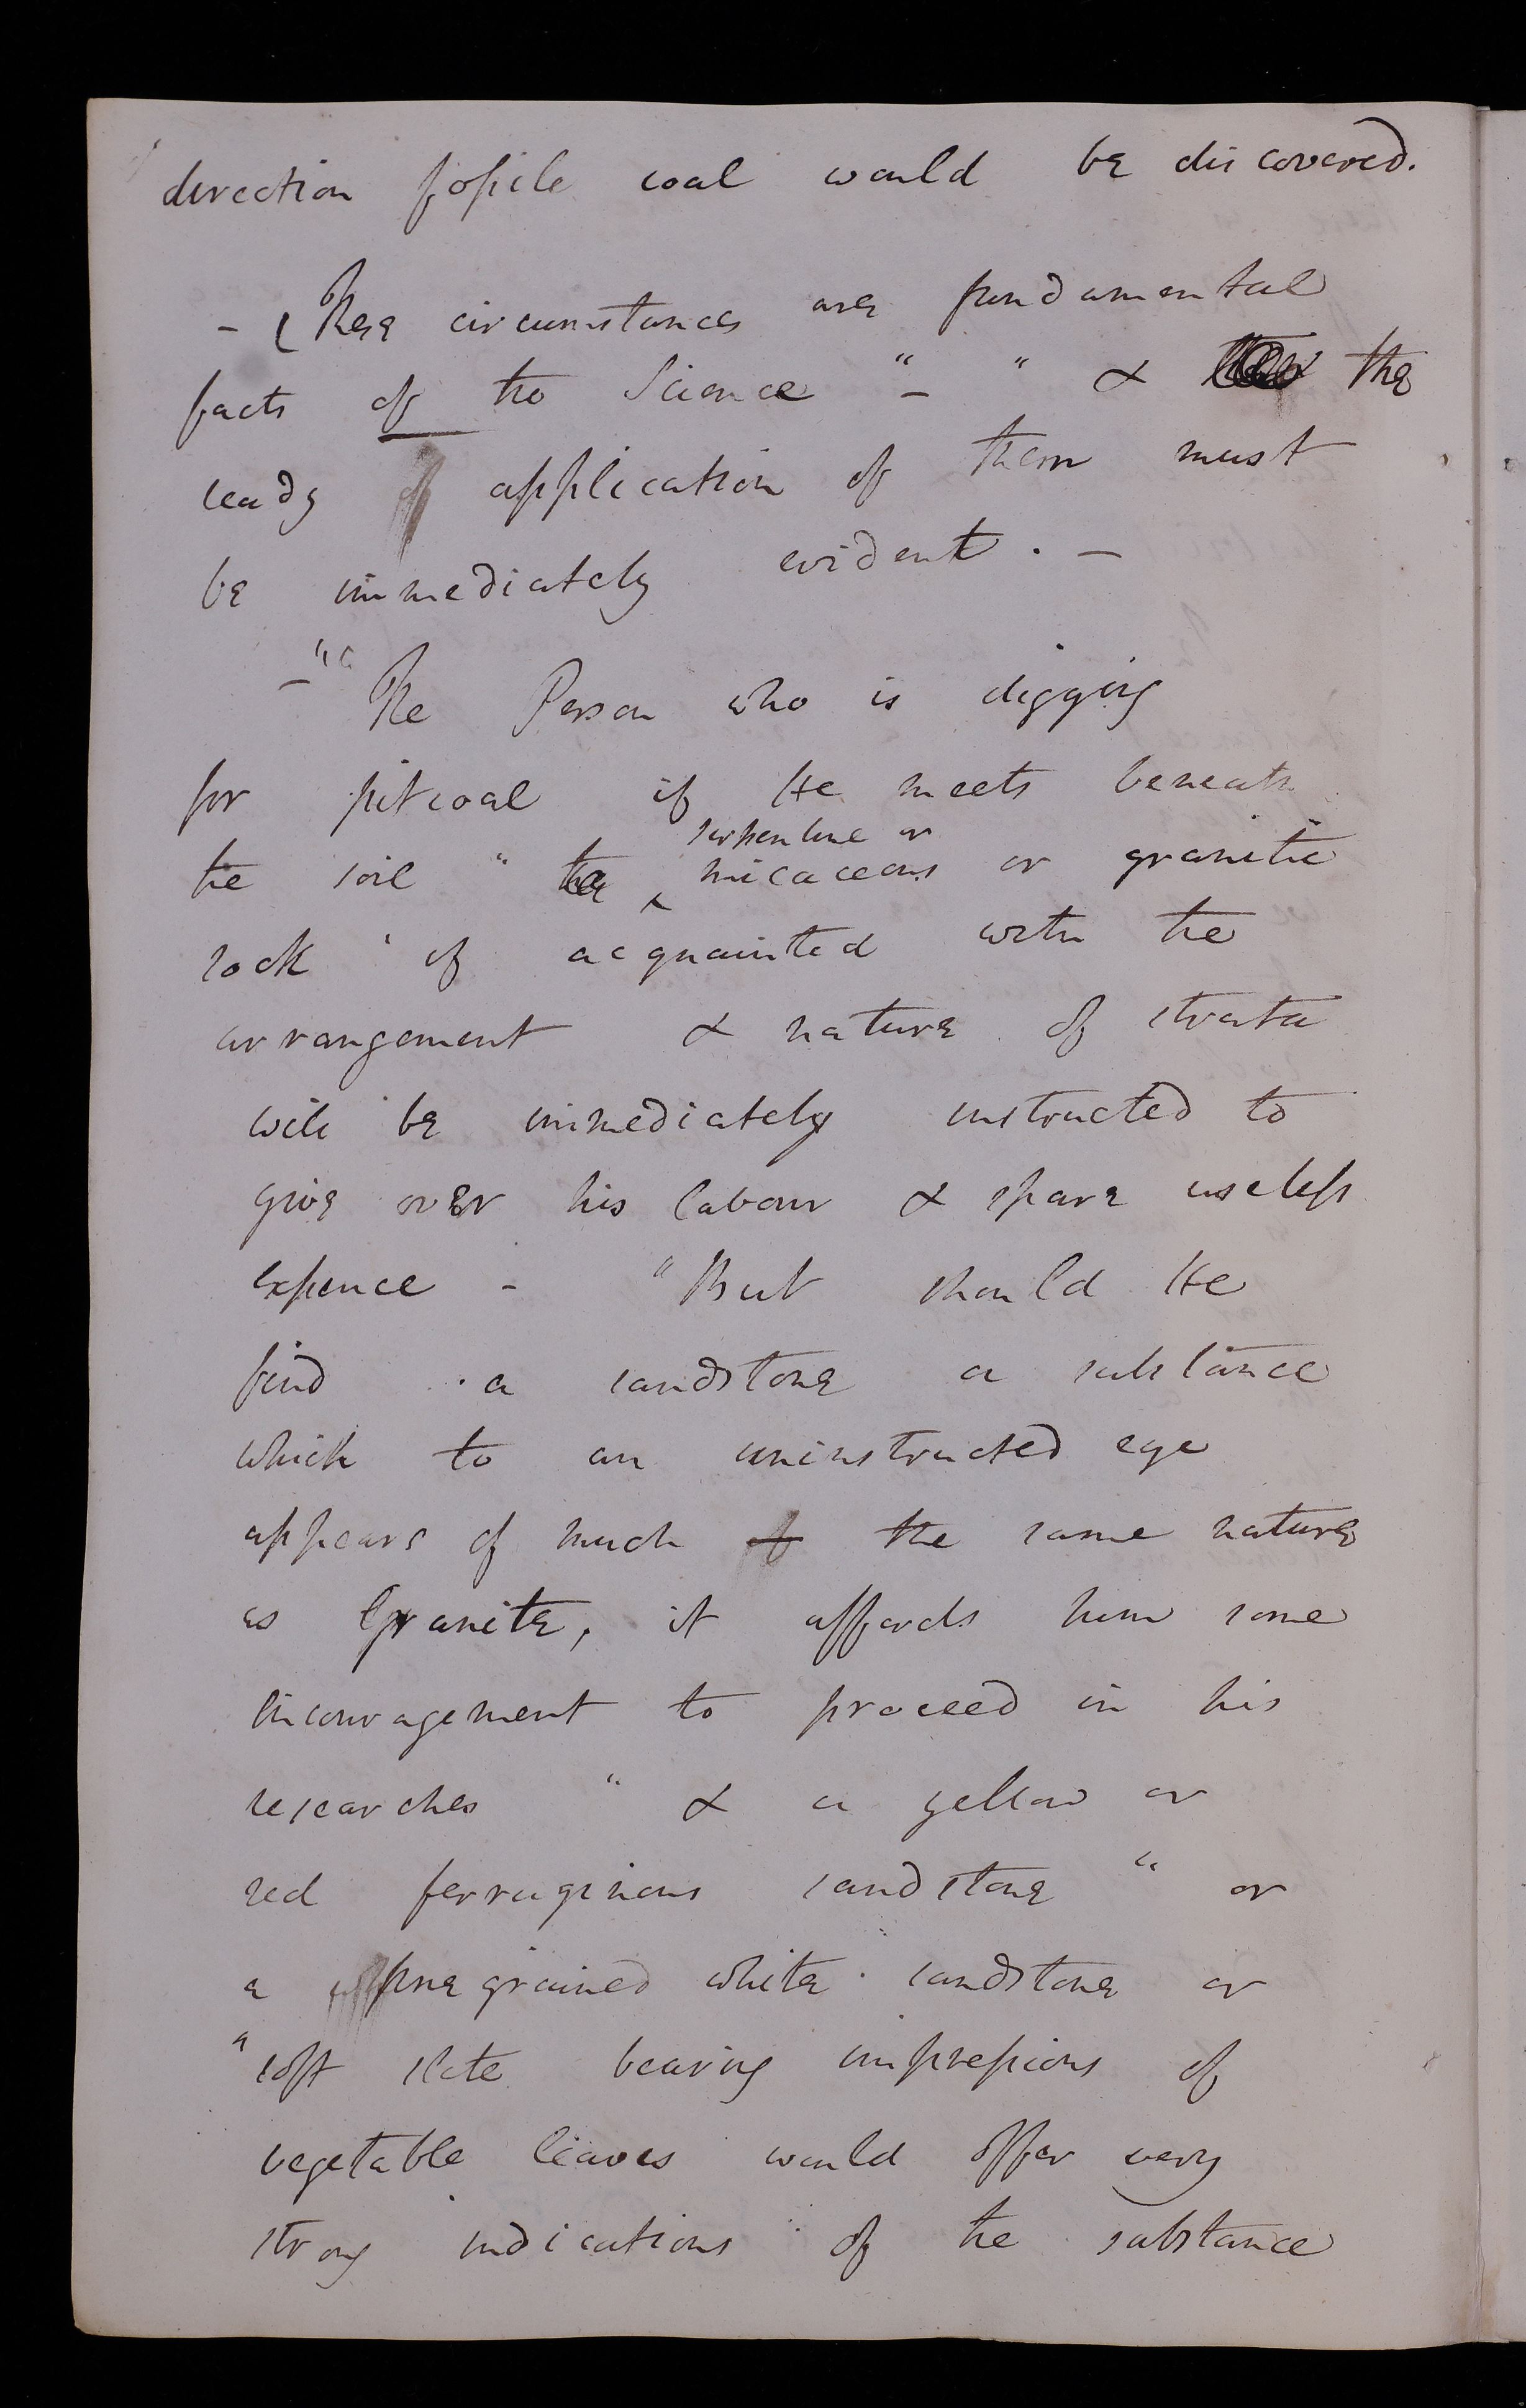 direction fossile coal would be discovered.
– (These circumstances are fundamental
facts of the Science "– " & the
ready application of them must
be immediately evident. –
–"" The Person who is digging
for pitcoal if He meets beneath
serpentine or
the soil " the micaceous or granitic
rock ' if acquainted with the
arrangement & nature of strata
will be immediately instructed to
give over his labour & spare useless
expence – "But should He
find a sandstone a substance
which to an uninstructed eye
appears of much of the same nature
as Granite, it affords him some
encouragement to proceed in his
researches " & a yellow or
red ferruginous sandstone " or
a fine grained white sandstone or
" soft slate bearing impressions of
vegetable leaves would offer very
strong indications of the substance